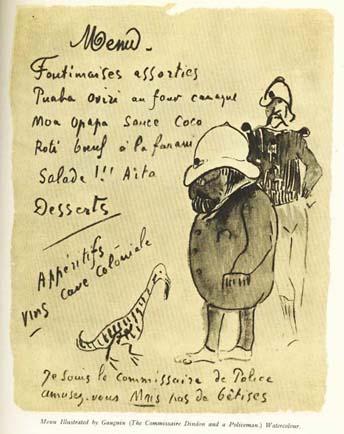 Menu
Foutimaises assorties
Puaba Oviri au four canaque
Moa Opapa Sauce Coco
Roti bœuf à la farani
Salade !!! Aita
Desserts
Appéritifs
cave colôniale
vins
Je sous le Commissaire de Police
amusez-vous Mais pas de bêtises
Menu Illustrated by Gauguin (The Commissaire Dindon and a Policeman.) Watercolour.